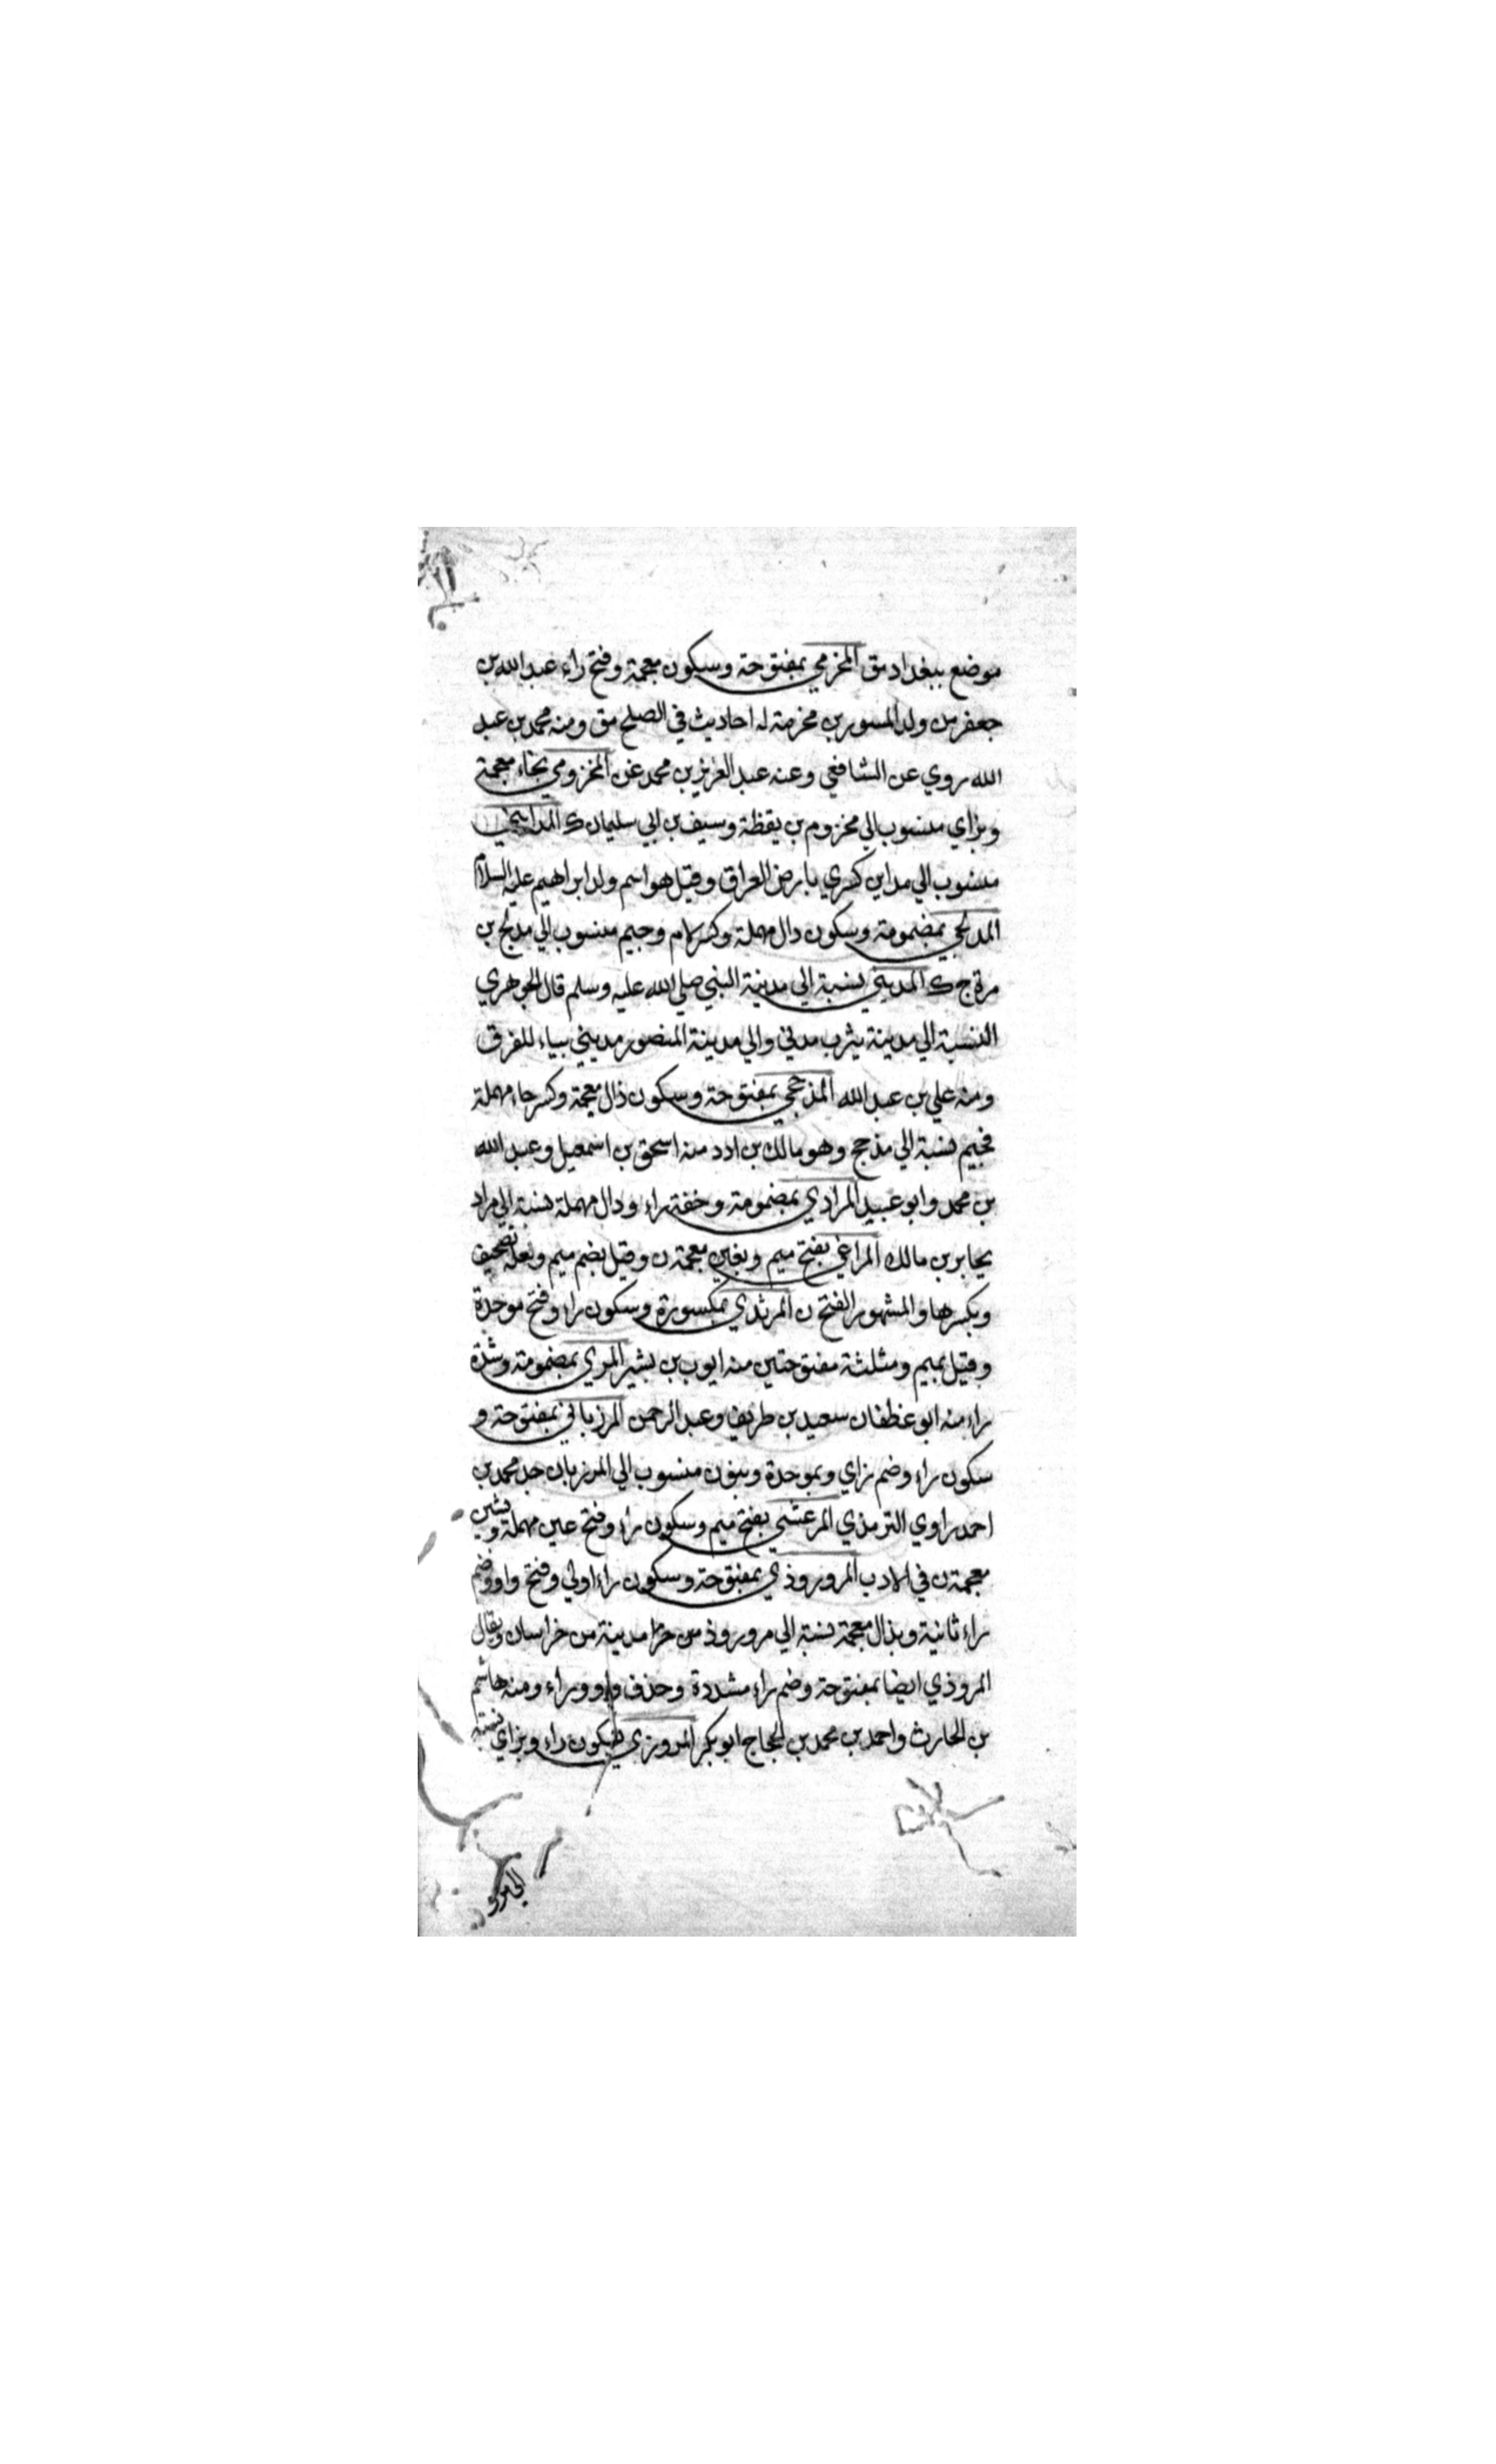 موضع ببغداد مق المخرمي بمفتوحة وسكون معجمة وفتح راء عبد الله بن
جعفر من ولد المسور بن مخرمة له احاديث في الصلح مق ومنه محمد بن عبد
الله روي عن الشافعي وعنه عبد العزيز بن محمد غن المخزومي بخاء معجمة
وبزاي منسوب الي مخزوم بن يقظة وسيف بن ابي سليمان ك المدايني
منسوب الي مداين كسري بارض العراق وقيل هو اسم ولد ابراهيم عليه السلام
المدلجي بمضمومة وسكون دال مهملة وكسر لام وجيم منسوب الي مدلج بن
مرة ج ك المديني نسبة الي مدينة النبي صلي الله عليه وسلم قال الجوهري
النسبة الي مدينة يثرب مدني والي مدينة المنصور مديني بياء للفرق
ومنه علي بن عبد الله المذحجي بمفتوحة وسكون ذال معجمة وكسر حاء مهملة
فجيم نسبة الي مذحج وهو مالك بن ادد منه اسحق بن اسمعيل وعبد الله
بن محمد وابو عبيد المرادي بمضمومة وخفة راء ودال مهملة نسبة الي مراد
يحابر بن مالك المراغي بفتح ميم وبغين معجمة ن وقيل بضم ميم ولعله تصحيف
وبكسرها والمشهور الفتح ن المرثدي بمكسورة وسكون راء وفتح موحدة
وقيل بميم ومثلثة مفتوحتين منه ايوب بن بشير المري بمضمومة وشدة
راء منه ابو غطفان سعيد بن طريف وعبد الرحمن المرزباني بمفتوحة و
سكون راء وضم زاي وبموحدة وبنون منسوب الي المرزبان جد محمد بن
احمد راوي الترمذي المرعشي بفتح ميم وسكون راء وفتح عين مهملة وبشين
معجمة ن في الادب المروروذي بمفتوحة وسكون راء اولي وفتح واو وضم
راء ثانية وبذال معجمة نسبة الي مروروذ من مدينة من خراسان ويقال
المروذي ايضا بمفتوحة وضم راء مشددة وحذف واو وراء ومنه هاشم
بن الحارث واحمد بن محمد بن الحجاج ابو بكر المروزي بسكون راء وبزاي نسبة
الي مرو